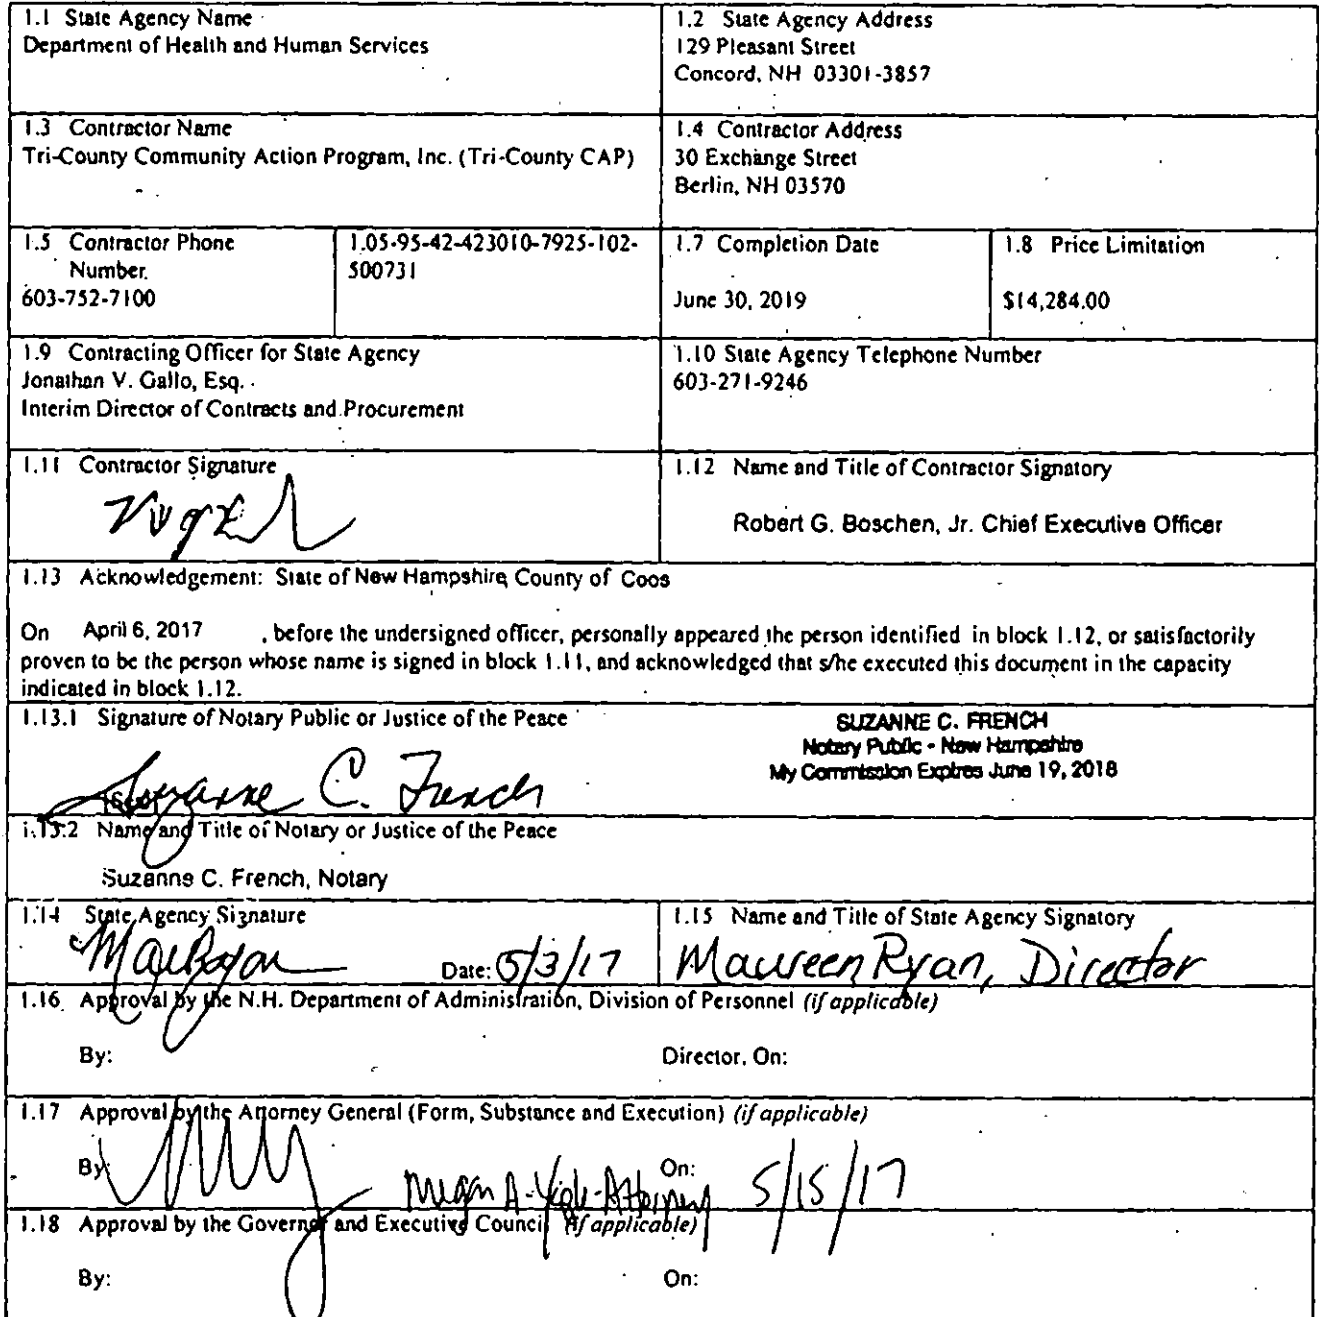 1.1 State Agency Name
Department of Health and Human Services
1.2 State Agency Address
129 Pleasant Street
Concord, NH 03301-3857
1.3 Contractor Name
Tri-County Community Action Program, Inc. (Tri-County CAP)
1.4 Contractor Address
30 Exchange Street
Berlin, NH 03570
1.5 Contractor Phone
Number.
603-752-7100
1.05-95-42-423010-7925-102-
500731
1.7 Completion Date
June 30, 2019
1.8 Price Limitation
$14,284.00
1.9 Contracting Officer for State Agency
Jonathan V. Gallo, Esq.
Interim Director of Contracts and Procurement
1.10 State Agency Telephone Number
603-271-9246
1.11 Contractor Signature
1.12 Name and Title of Contractor Signatory
Robert G. Boschen, Jr. Chief Executive Officer
1.13 Acknowledgement: State of New Hampshire, County of Coos
On April 6, 2017 , before the undersigned officer, personally appeared the person identified in block 1.12, or satisfactorily
proven to be the person whose name is signed in block 1.11, and acknowledged that s/he executed this document in the capacity
indicated in block 1.12.
1.13.1 Signature of Notary Public or Justice of the Peace
SUZANNE C. FRENCH
Notary Public - New Hampshire
My Commission Expires June 19, 2018
Suzanne C. French
[Seal]
1.13.2 Name and Title of Notary or Justice of the Peace
Suzanne C. French, Notary
1.14 State Agency Signature
Date: 5/3/17
1.15 Name and Title of State Agency Signatory
Maureen Ryan, Director
1.16 Approval by the N.H. Department of Administration, Division of Personnel (if applicable)
By: Director, On:
1.17 Approval by the Attorney General (Form, Substance and Execution) (if applicable)
By: Megan A. - Attorney On: 5/15/17
1.18 Approval by the Governor and Executive Council (if applicable)
By: On: